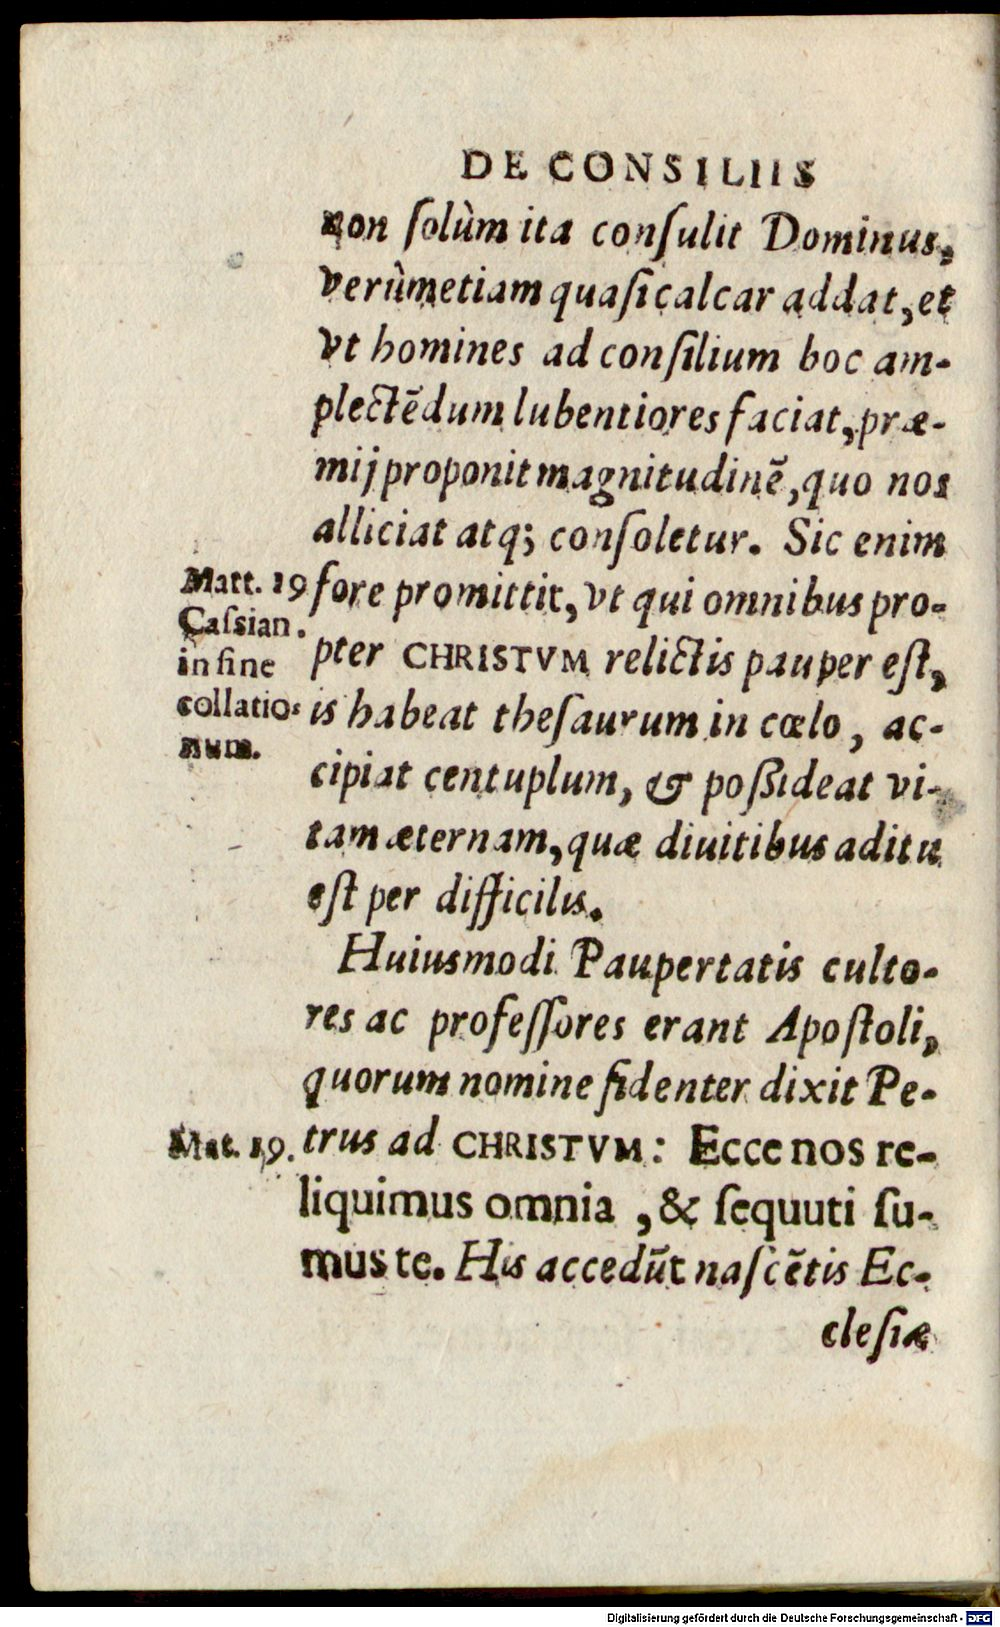 DE CONSILIIS
non ſolùm ita conſulit Dominus,
verùmetiam quaſi calcar addat, et
vt homines ad conſilium hoc am-
plectẽdum lubentiores faciat, præ-
mij proponit magnitudinẽ, quo nos
alliciat atq; conſoletur. Sic enim
Matt. 19
Caſsian.
in fine
collatio-
num.
fore promittit, vt qui omnibus pro-
pter CHRISTVM relictis pauper eſt,
is habeat theſaurum in cœlo, ac-
cipiat centuplum, & poßideat vi-
tam æternam, quæ diuitibus aditu
eſt per difficilis.
Huiusmodi Paupertatis culto-
res ac profeſſores erant Apoſtoli,
quorum nomine fidenter dixit Pe-
Mat. 19.
trus ad CHRISTVM: Ecce nos re-
liquimus omnia, & ſequuti ſu-
mus te. His accedũt naſcẽtis Ec-
cleſiæ
Digitalisierung gefördert durch die Deutsche Forschungsgemeinschaft - DFG